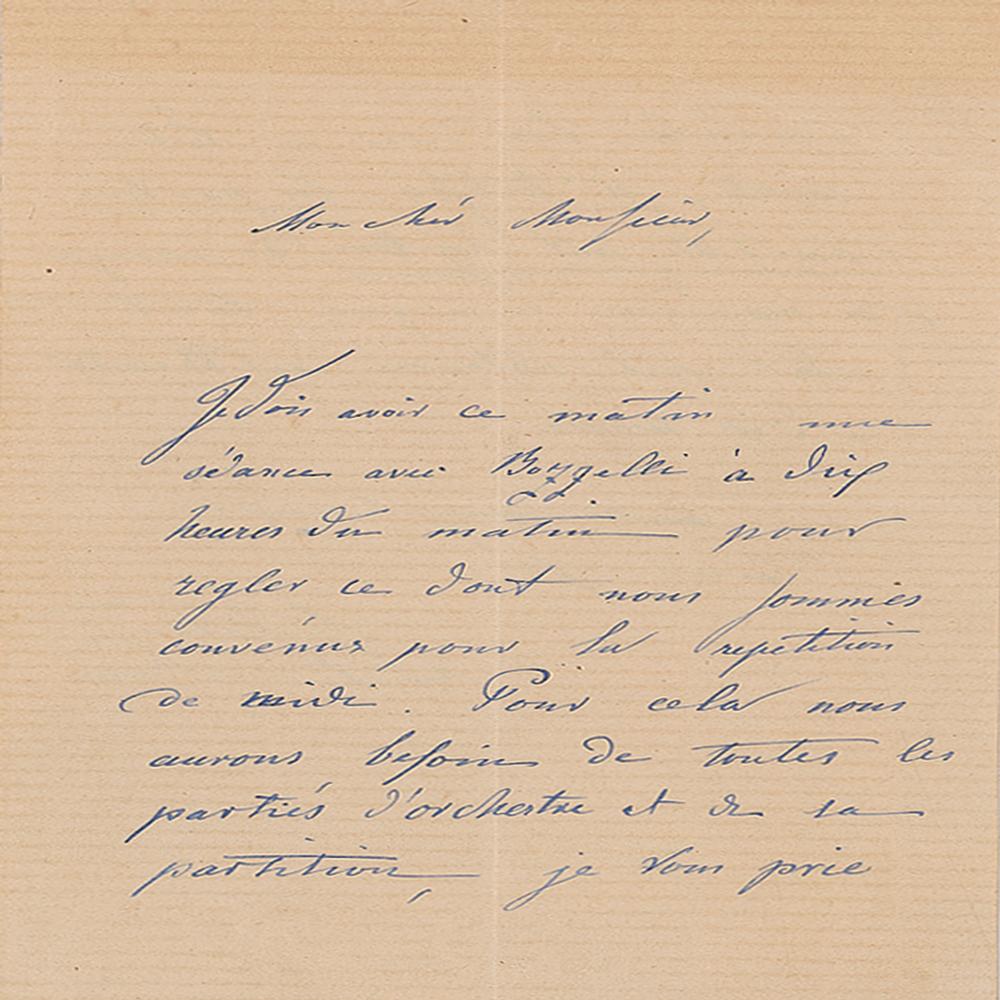 Mon cher Monsieur,
Je dois avoir ce matin une
séance avec Bozzelli à dix
heures du matin pour
regler ce dont nous sommes
convenus pour la repetition
de midi. Pour cela nous
aurons besoin de toutes les
parties d'orchestre et de la
partition, je vous prie